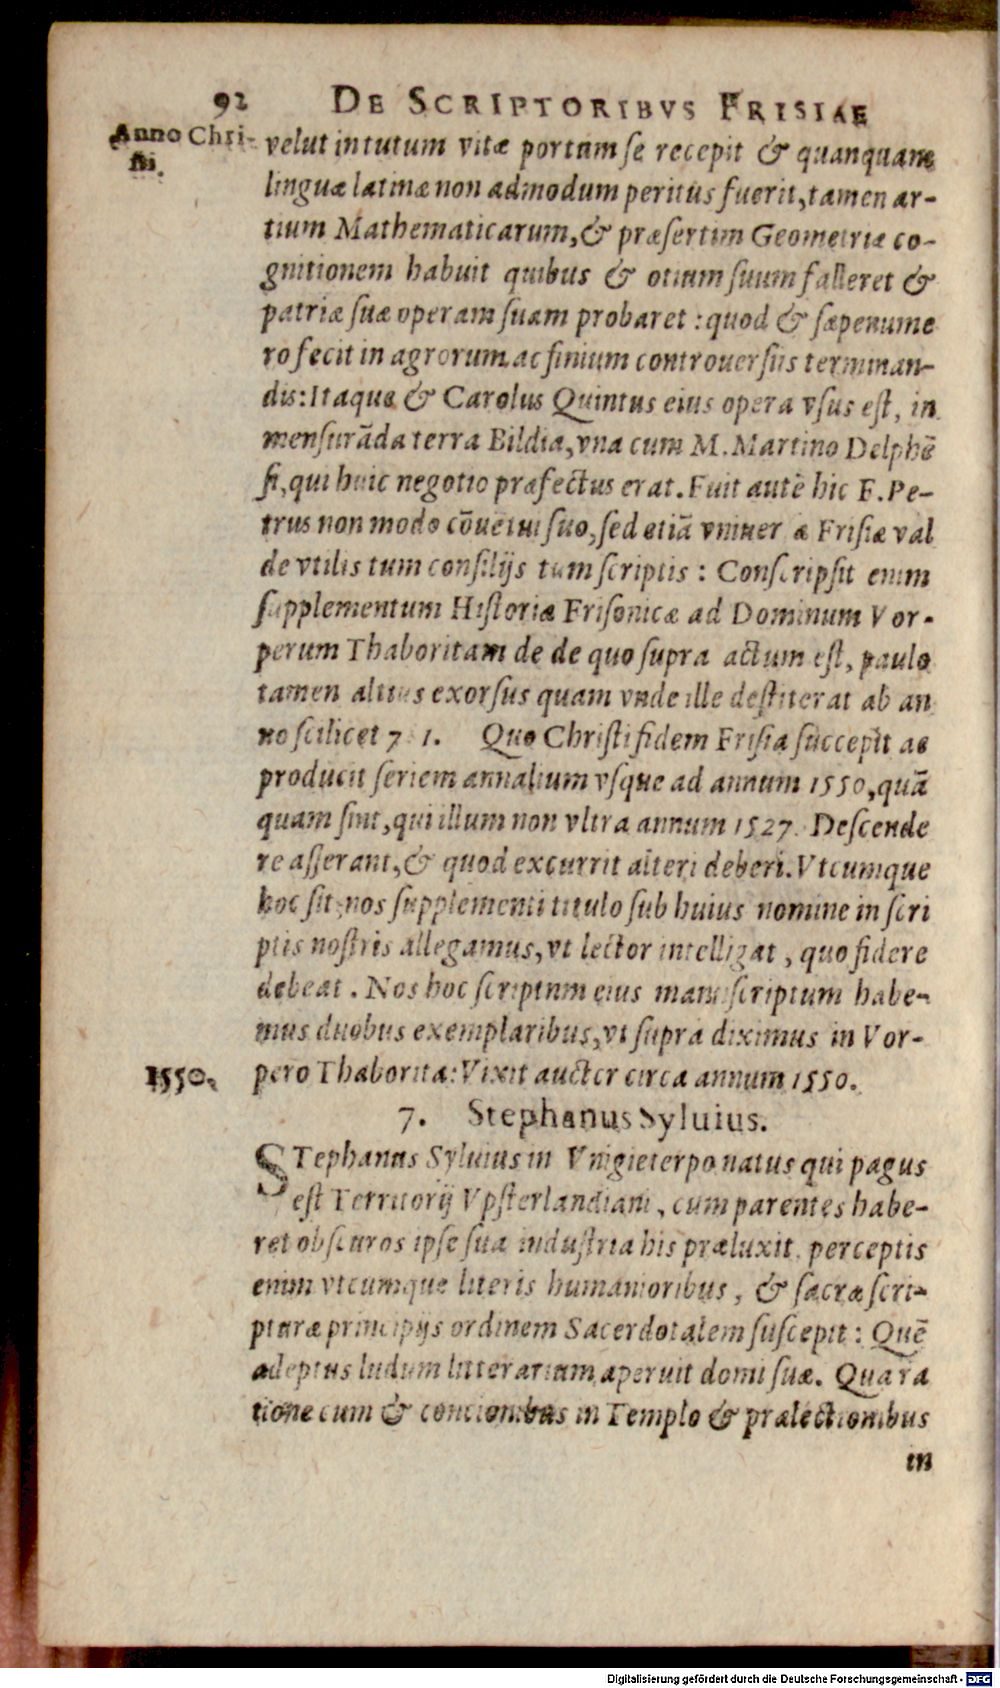 92 DE SCRIPTORIBVS FRISIAE
Anno Chri-
sti.
velut in tutum vitæ portum se recepit & quanquam
linguæ latinæ non admodum peritus fuerit, tamen ar-
tium Mathematicarum, & præsertim Geometriæ co-
gnitionem habuit quibus & otium suum falleret &
patriæ suæ operam suam probaret : quod & sæpenume
ro fecit in agrorum ac finium controuersiis terminan-
dis: Itaque & Carolus Quintus eius opera vsus est, in
mensurāda terra Bildia, vna cum M. Martino Delphē
si, qui huic negotio præfectus erat. Fuit autē hic F. Pe-
trus non modo cōuetui suo, sed etiā vniuer æ Frisiæ val
de vtilis tum consilijs tum scriptis : Conscripsit enim
supplementum Historiæ Frisonicæ ad Dominum Vor-
perum Thaboritam de de quo supra actum est, paulo
tamen altius exorsus quam vnde ille destiterat ab an
no scilicet 7 1. Quo Christi fidem Frisia succepit ac
producit seriem annalium vsque ad annum 1550, quā
quam sint, qui illum non vltra annum 1527. Descende
re asserant, & quod excurrit alteri deberi. Vtcumque
hoc sit, nos supplementi titulo sub huius nomine in scri
ptis nostris allegamus, vt lector intelligat, quo fidere
debeat. Nos hoc scriptum eius manuscriptum habe-
mus duobus exemplaribus, vt supra diximus in Vor-
1550. pero Thaborita: Vixit auctor circa annum 1550.
7. Stephanus Syluius.
STephanus Syluius in Vnigieterpo natus qui pagus
est Territorij Vpsterlandiani, cum parentes habe-
ret obscuros ipse sua industria his præluxit, perceptis
enim vtcumque literis humanioribus, & sacræ scri-
pturæ principijs ordinem Sacerdotalem suscepit : Quē
adeptus ludum litterarium aperuit domi suæ. Qua ra
tione cum & concionibus in Templo & prælectionibus
in
Digitalisierung gefördert durch die Deutsche Forschungsgemeinschaft - DFG